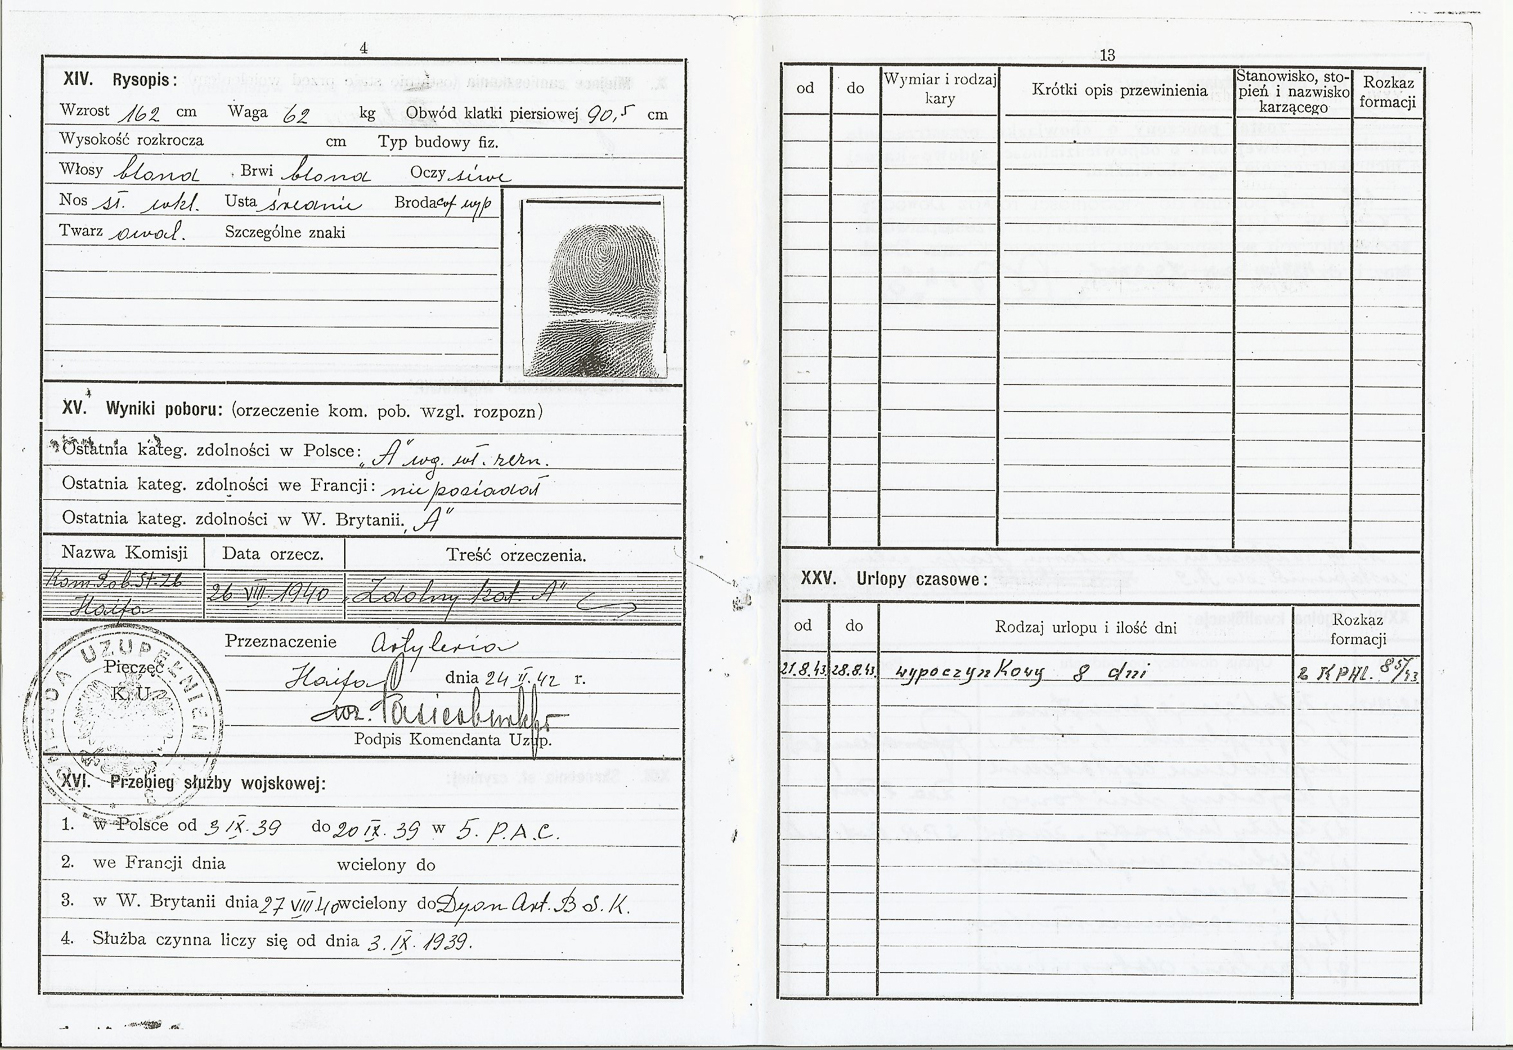 4
XIV. Rysopis:
Wzrost 162 cm Waga 62 kg Obwód klatki piersiowej 90,5 cm
Wysokość rozkrocza cm Typ budowy fiz.
Włosy blond Brwi blond Oczy siwe
Nos śr. wkl. Usta średnie Broda cof wyp
Twarz owal. Szczególne znaki
XV. Wyniki poboru: (orzeczenie kom. pob. wzgl. rozpozn)
Ostatnia kateg. zdolności w Polsce: „A" wg. wł. zezn.
Ostatnia kateg. zdolności we Francji: nie posiadał
Ostatnia kateg. zdolności w W. Brytanii „A"
Nazwa Komisji Data orzecz. Treść orzeczenia.
Kom. Pob. St. Zb. Haifa 26 VIII. 1940 „Zdolny kat. A"
Przeznaczenie Artyleria
Pieczęć
K. U.
UZUPEŁNIEŃ
Haifa dnia 24 II. 42 r.
Podpis Komendanta Uzup.
XVI. Przebieg służby wojskowej:
1. w Polsce od 3 IX. 39 do 20 IX. 39 w 5. P.A.C.
2. we Francji dnia wcielony do
3. w W. Brytanii dnia 27 VIII 40 wcielony do Dyon Art. B S. K.
4. Służba czynna liczy się od dnia 3. IX. 1939.
13
od do Wymiar i rodzaj kary Krótki opis przewinienia Stanowisko, stopień i nazwisko karzącego Rozkaz formacji
XXV. Urlopy czasowe:
od do Rodzaj urlopu i ilość dni Rozkaz formacji
21.8.43 28.8.43 wypoczynkowy 8 dni 2 KPHL. 85/43